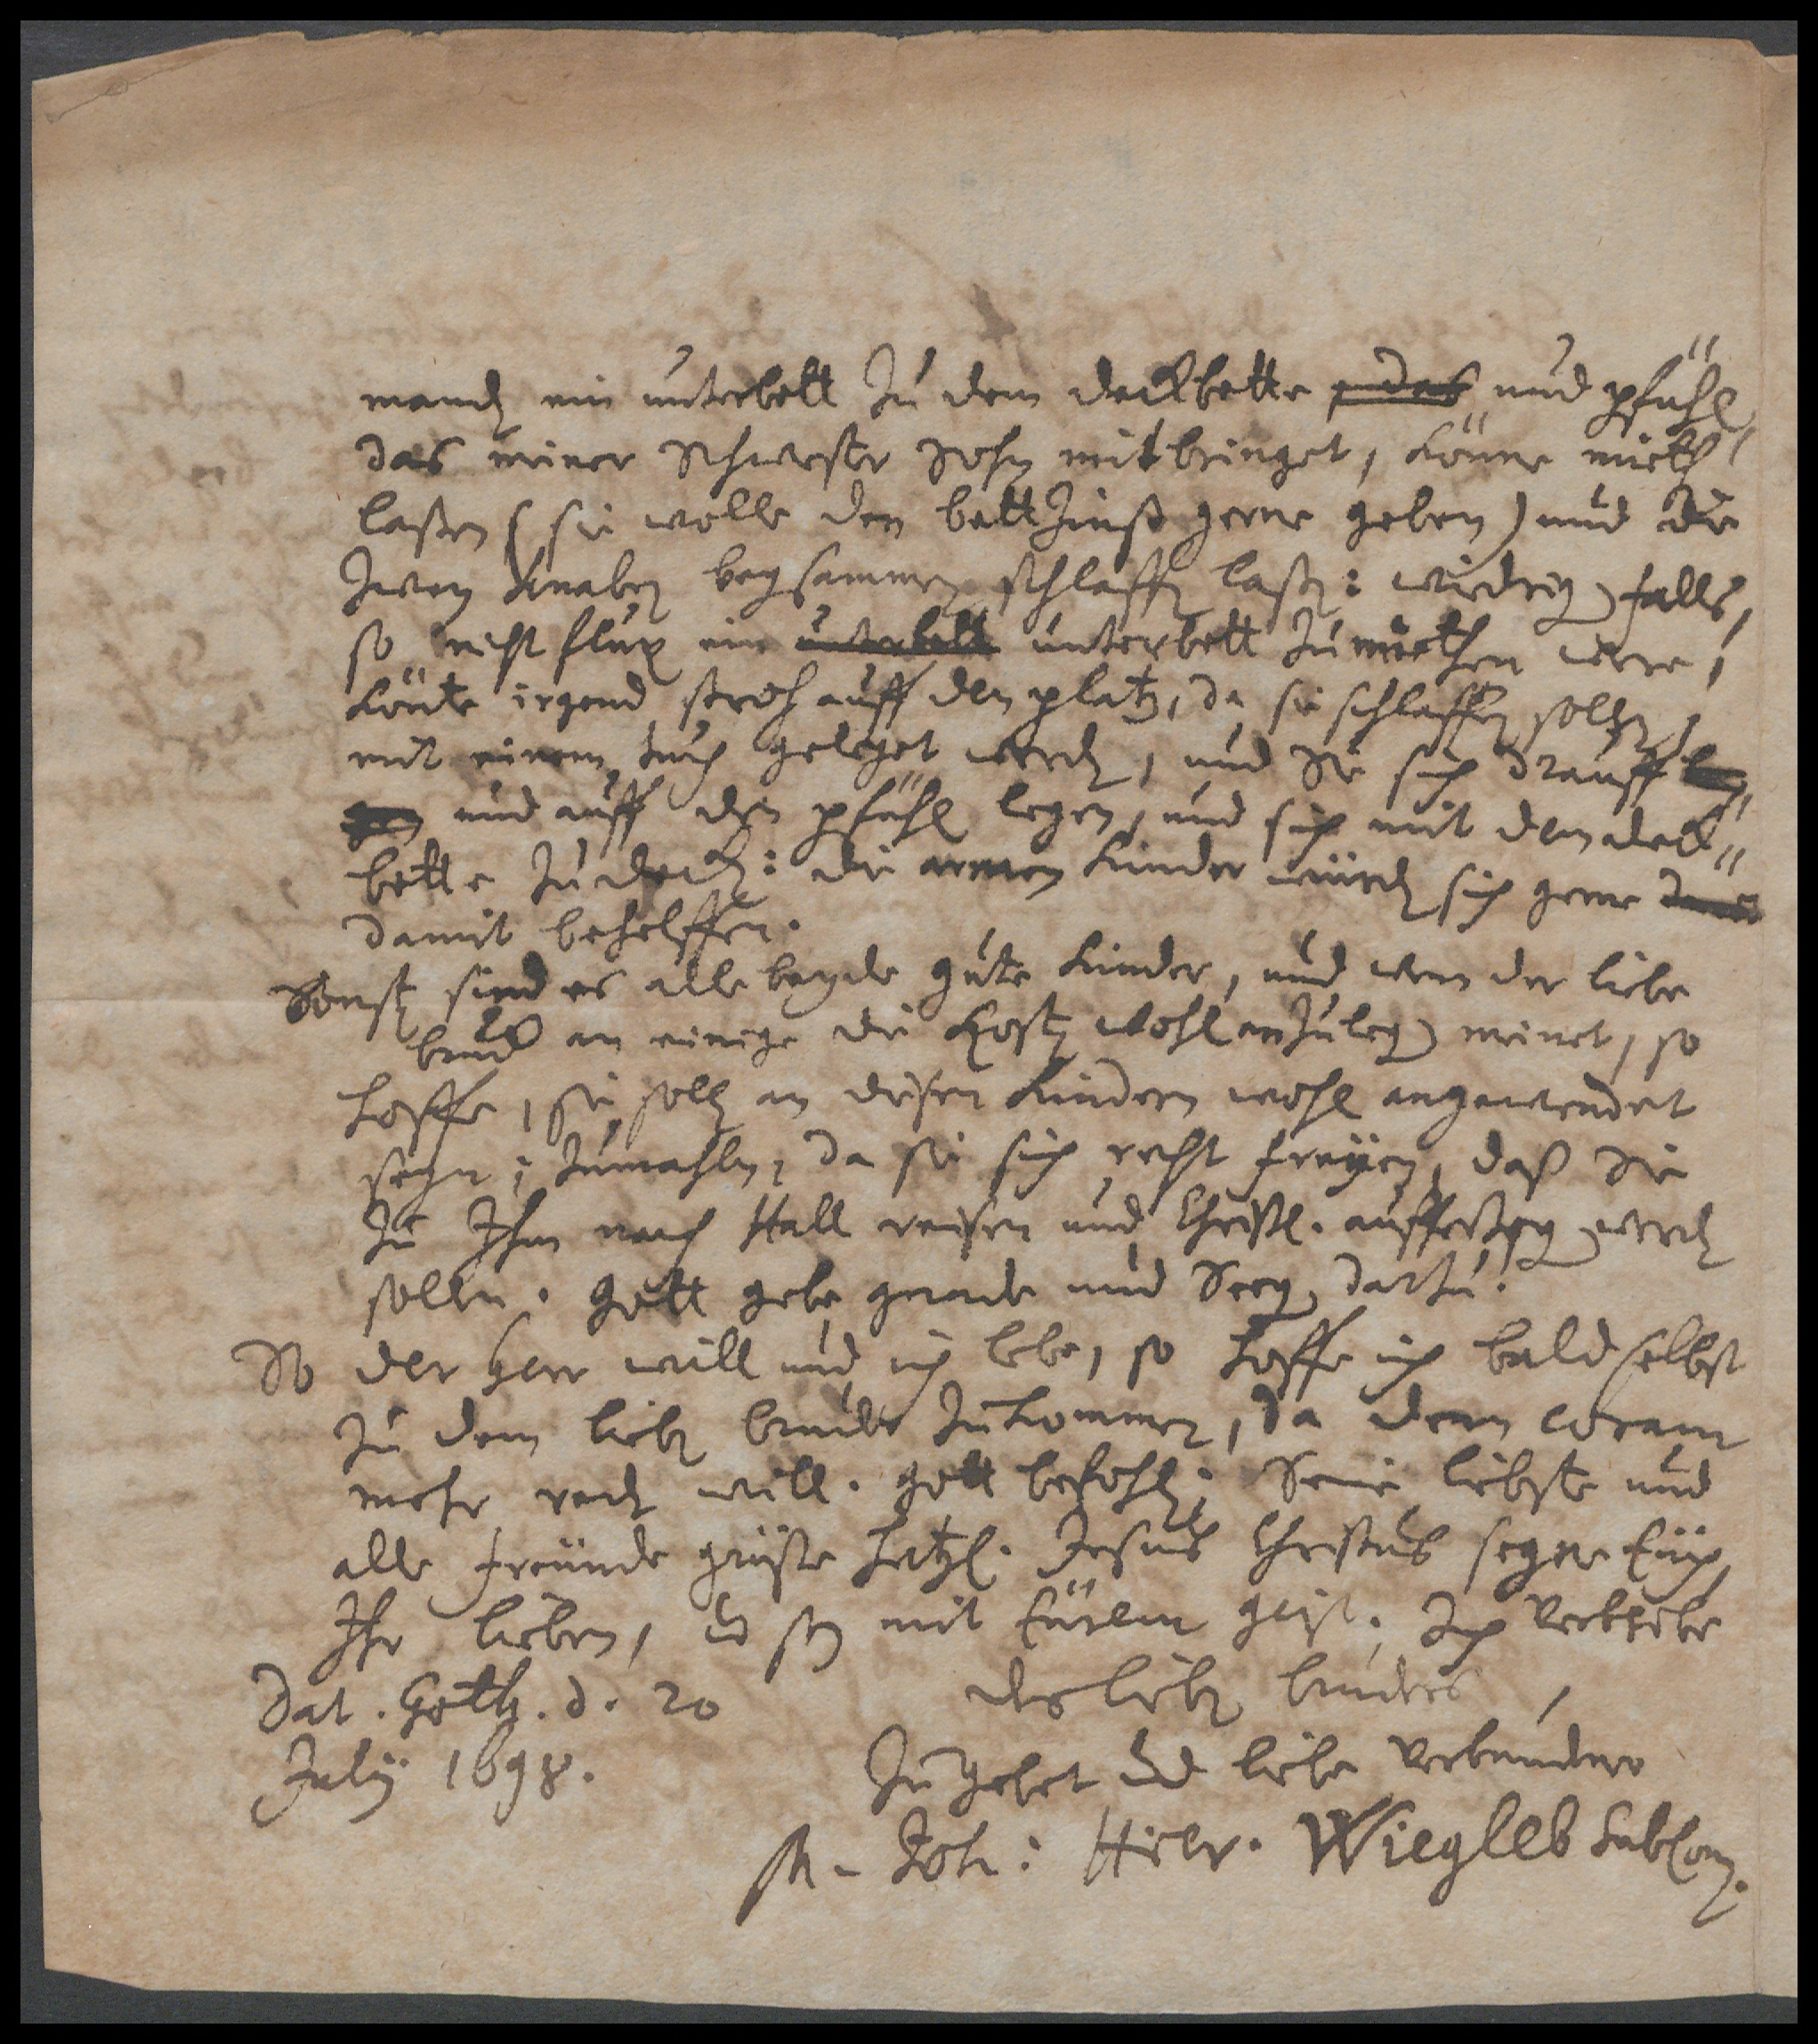 mandt ein unterbett zu dem deckbette, das und pfühl,
das meiner Schwester Sohn mitbringet, könne mieth
laßen (sie wolle den bettzinß gerne geben) und die
zwey Knaben beysammen schlaffen laßen: widrigen falls,
so nicht flux ein unterbett unterbett zu miethen were,
könte irgend stroh auff den platz, da sie schlaffen sollen,
mit einem tuch geleget werden, und Sie sich drauff
und auff den pfühl legen, und sich mit dem deck"
bette zudecken: die armen Kinder würden sich gerne
damit behelffen.
Sonst sind es alle beyde gute Kinder, und wenn der liebe
bruder an einige die Kost wohl anzulegen meinet, so
hoffe, sie solle an diesen Kindern wohl angewendet
seyn; zumahln, da sie sich recht freyen, daß Sie
zu Ihm nach Hall reisen und Christl. aufferzogen werden
sollen. Gott gebe gnade und Seegen dazu!
So der Herr will und ich lebe, so hoffe ich bald selbst
zu dem lieben bruder zukommen, da denn coram
mehr reden will. Gott befohlen; Seine liebste und
alle freunde grüße hertzl. Jesus Christus segne Euch,
Ihr lieben, und sey mit Eurem geist. Ich verbleibe
Dat. Goth. d. 20
July 1698.
des lieben bruders
Zu gebet und liebe Verbundner
M. Joh: Hier. Wiegleb SubCon.